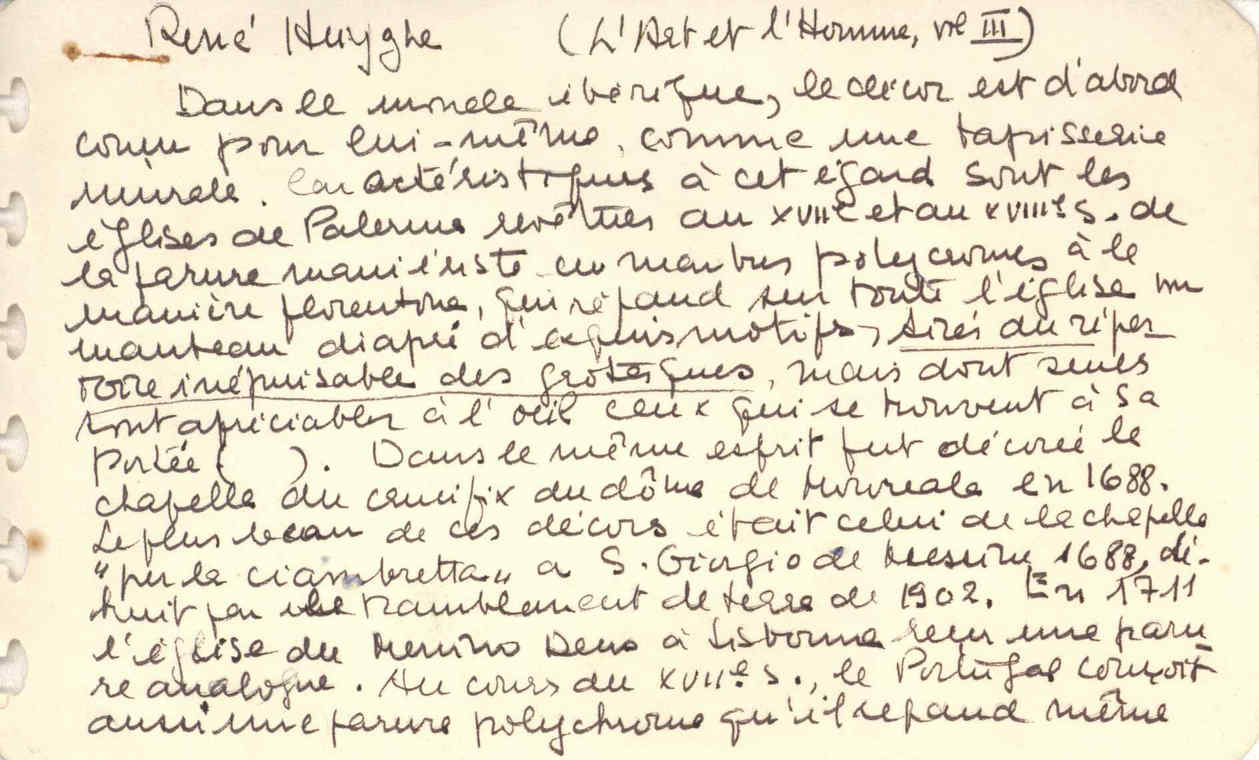 René Huyghe (L'Art et l'Homme, vol III)
Dans le monde ibérique, le décor est d'abord
conçu pour lui-même, comme une tapisserie
murale. Caractéristiques à cet égard sont les
églises de Palerme revêtues au XVIIe et au XVIIIe s. de
la parure maniériste en marbres polycromes à la
manière florentine, qui répand sur toute l'église un
manteau diapré d'exquis motifs, tirés du réper
toire inépuisable des grotesques, mais dont seuls
sont apréciables à l'oeil ceux qui se trouvent à sa
portée ( ). Dans le même esprit fut décorée la
chapelle du crucifix du dôme de Monreale en 1688.
Le plus beau de ces décors était celui de la chapelle
"per la ciambretta" a S. Giorgio de Messine 1688, dé-
truit par le tramblement de terre de 1902. En 1711
l'église du Menino Deus à Lisbonne reçu une paru
re analogue. Au cours du XVIIe s., le Portugal conçoit
aussi une parure polychrome qu'il repand même